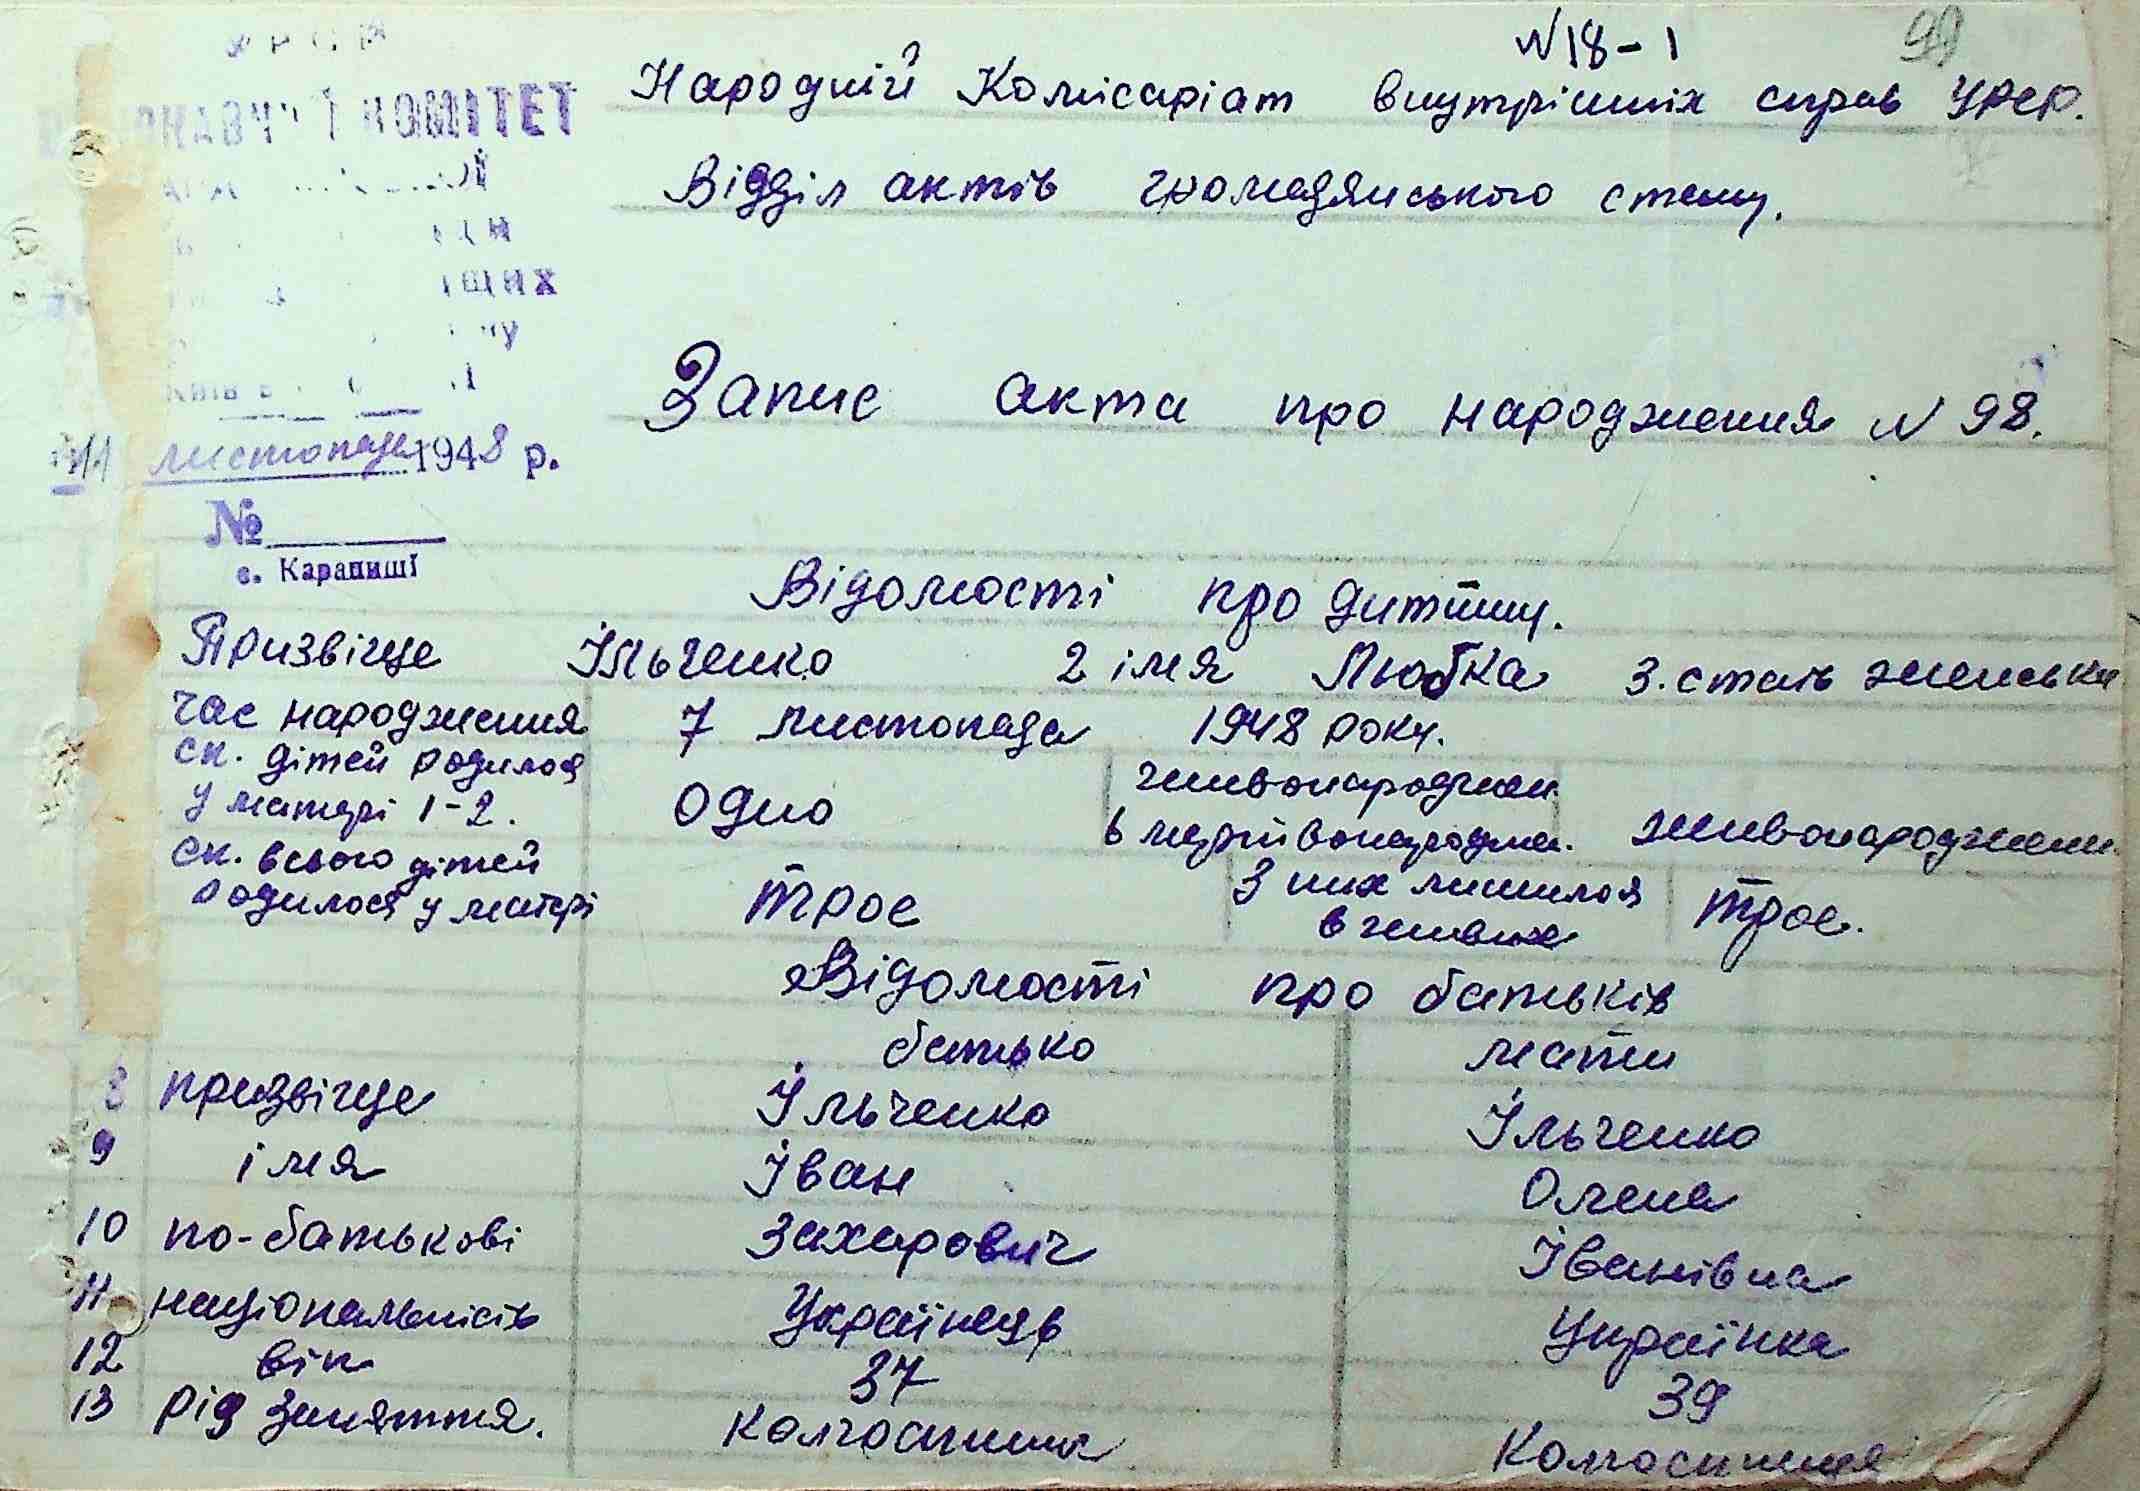 N18-1
99
Народній Комісаріат внутрішніх справ УРСР.
Відділ актів громадянського стану.
КОМІТЕТ
Запис акта про народження N 98.
11 листопада 1948 р.
№
с. Карапиші
Відомості про дитину.
Призвіще Ільченко 2 імя Любка 3. стать женська
час народження 7 листопада 1948 року.
ск. дітей родилося у матері 1-2. Одно живонароджен. в мертвонароджен. живонароджени
ск. всього дітей родилося у матері троє З них лишилося в живих троє.
Відомості про батьків
батько мати
8 призвіще Ільченко Ільченко
9 імя Іван Олена
10 по-батькові Захарович Іванівна
11 національність Українець Українка
12 вік 37 39
13 рід заняття. Колгоспник Колгоспниця